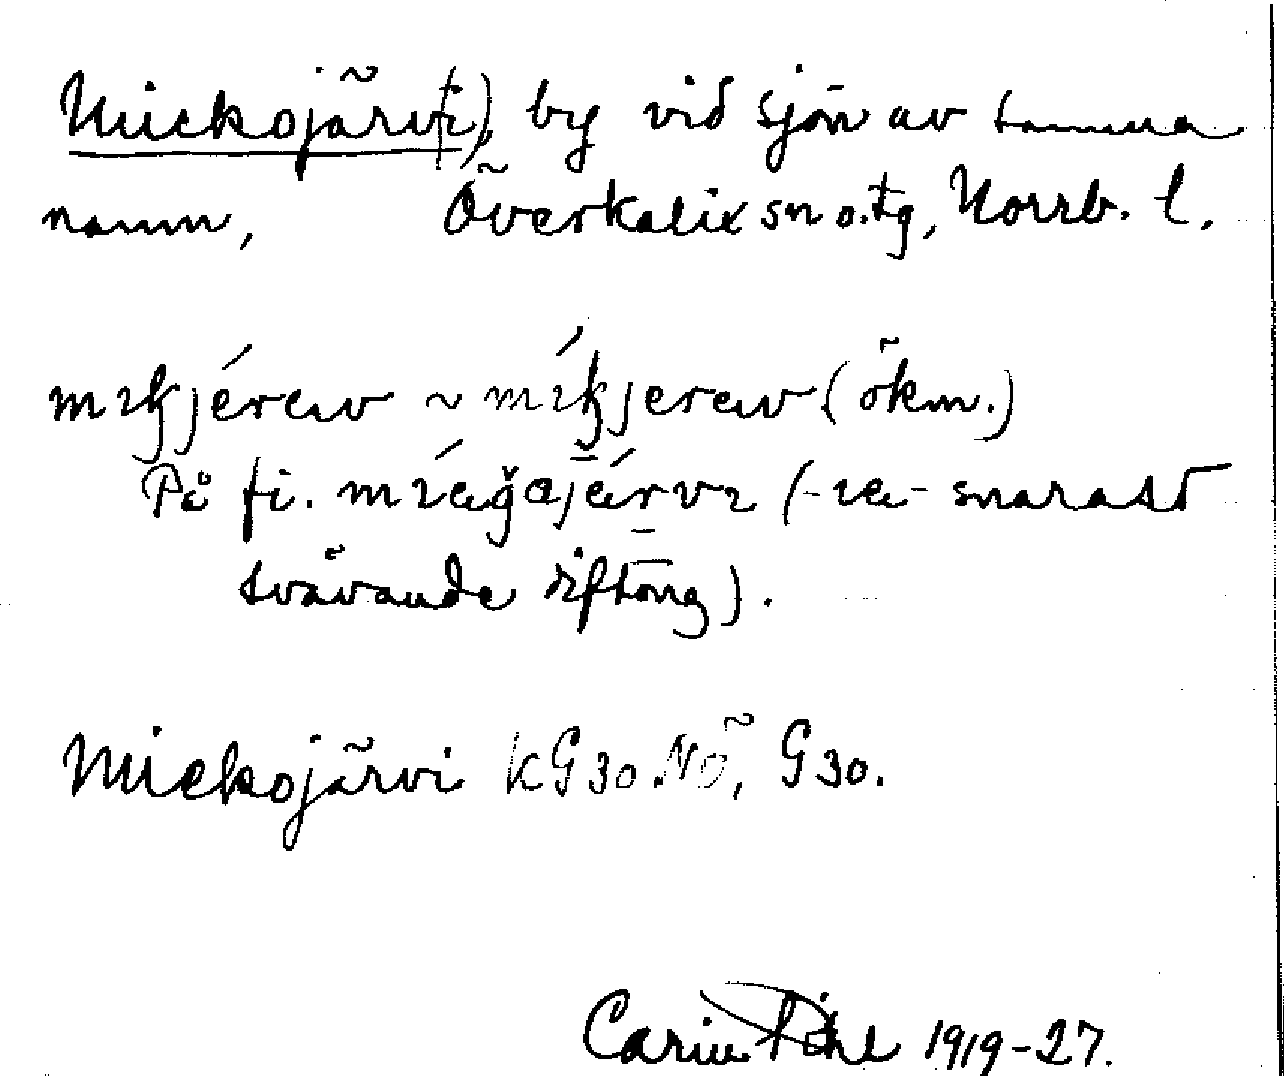 Mickojärv(i), by vid sjön av samma
namn, Överkalix sn o. tg, Norrb. l.
mɪkjérəw ~ mɪ́kjerəw (ökm.)
På fi. mɪ́aǧajä́rvɪ (-ɪa- snarast
svävande diftong).
Mickojärvi kG30NÖ, G30.
Carin Pihl 1919-27.